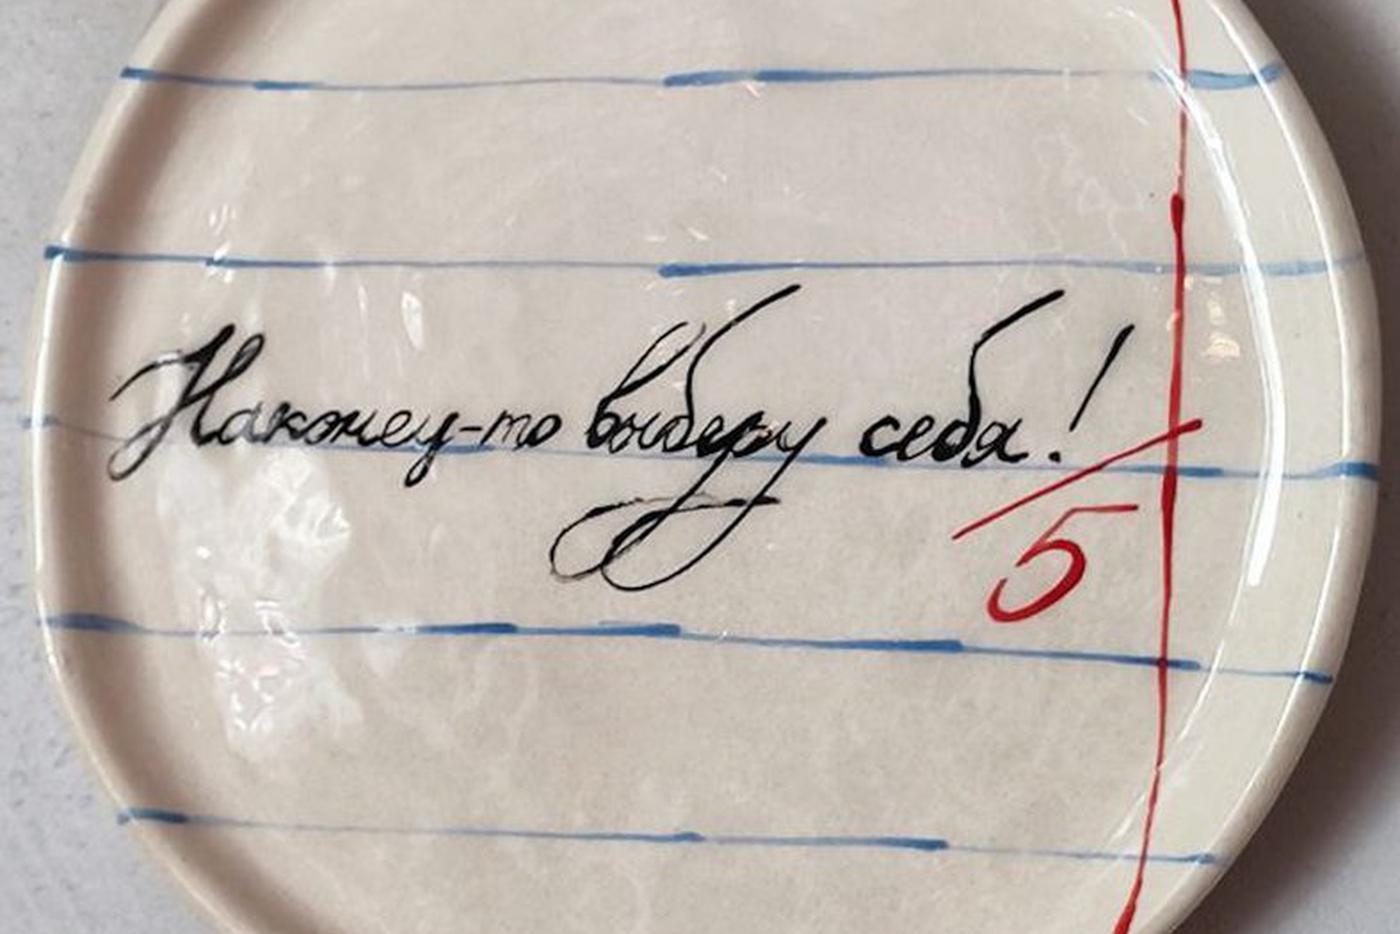 Наконец-то выберу себя!
5